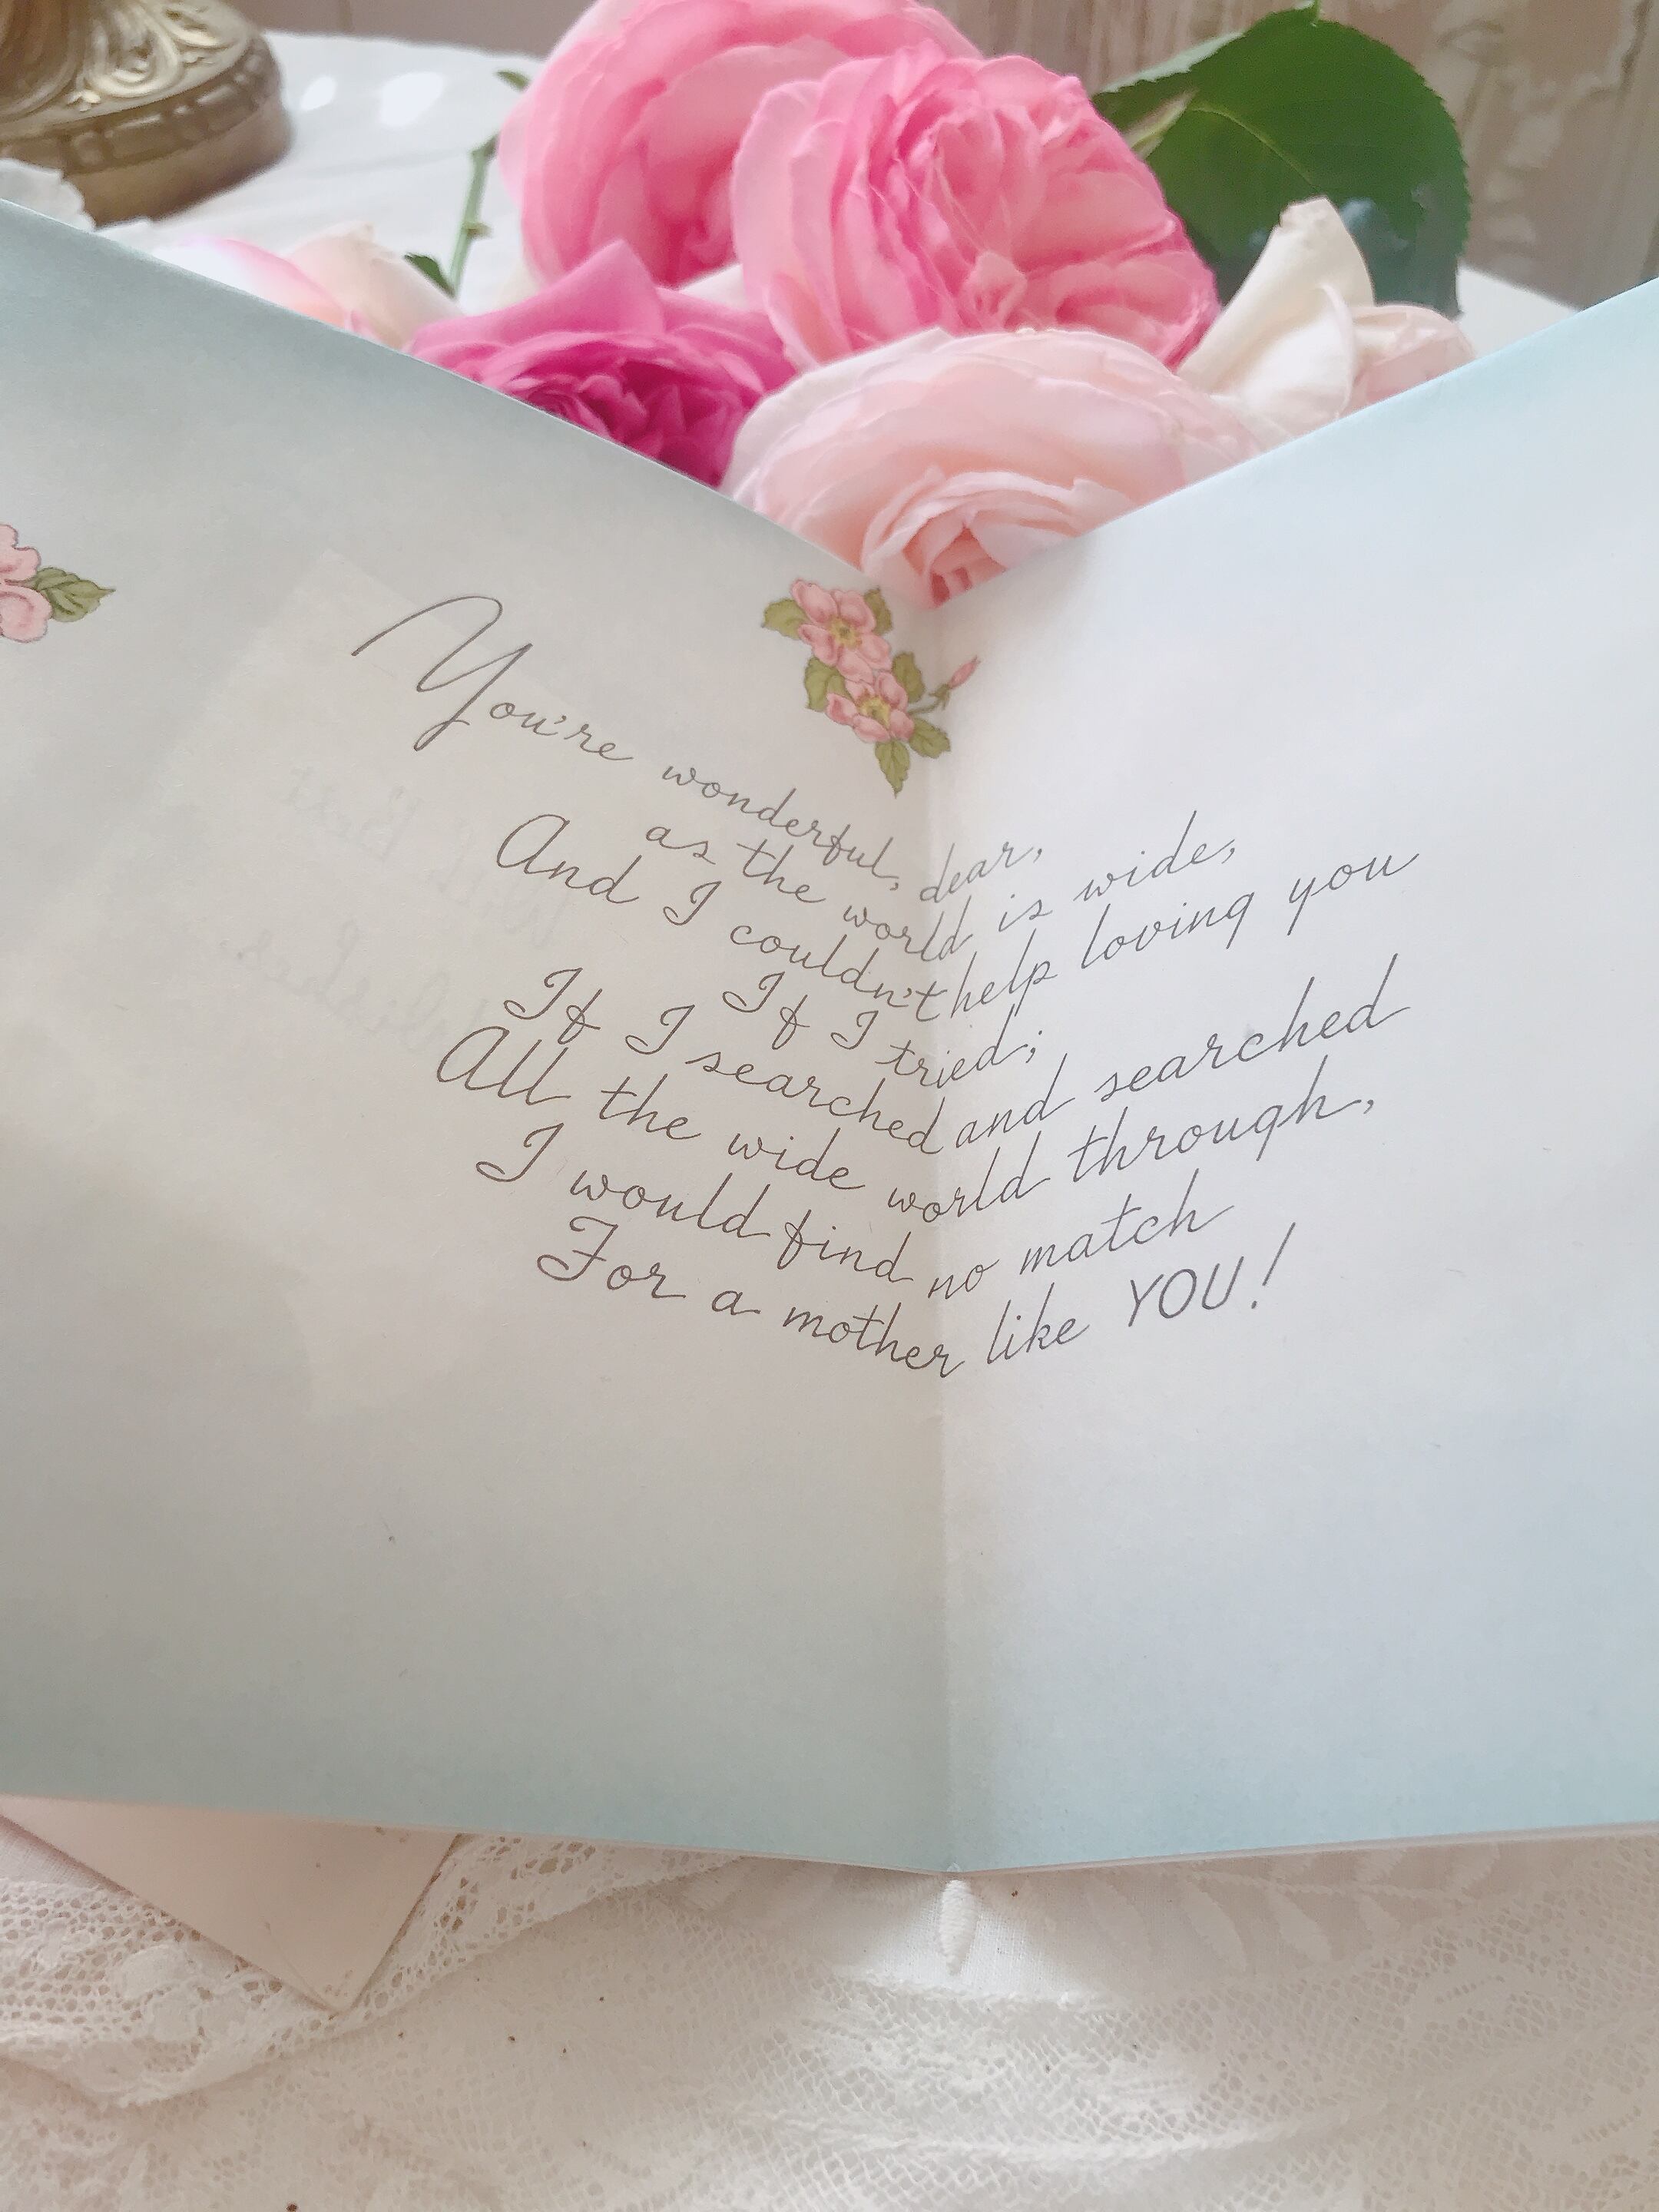 You're wonderful, dear,
as the world is wide,
And I couldn't help loving you
If I tried;
If I searched and searched
All the wide world through,
I would find no match
For a mother like YOU!